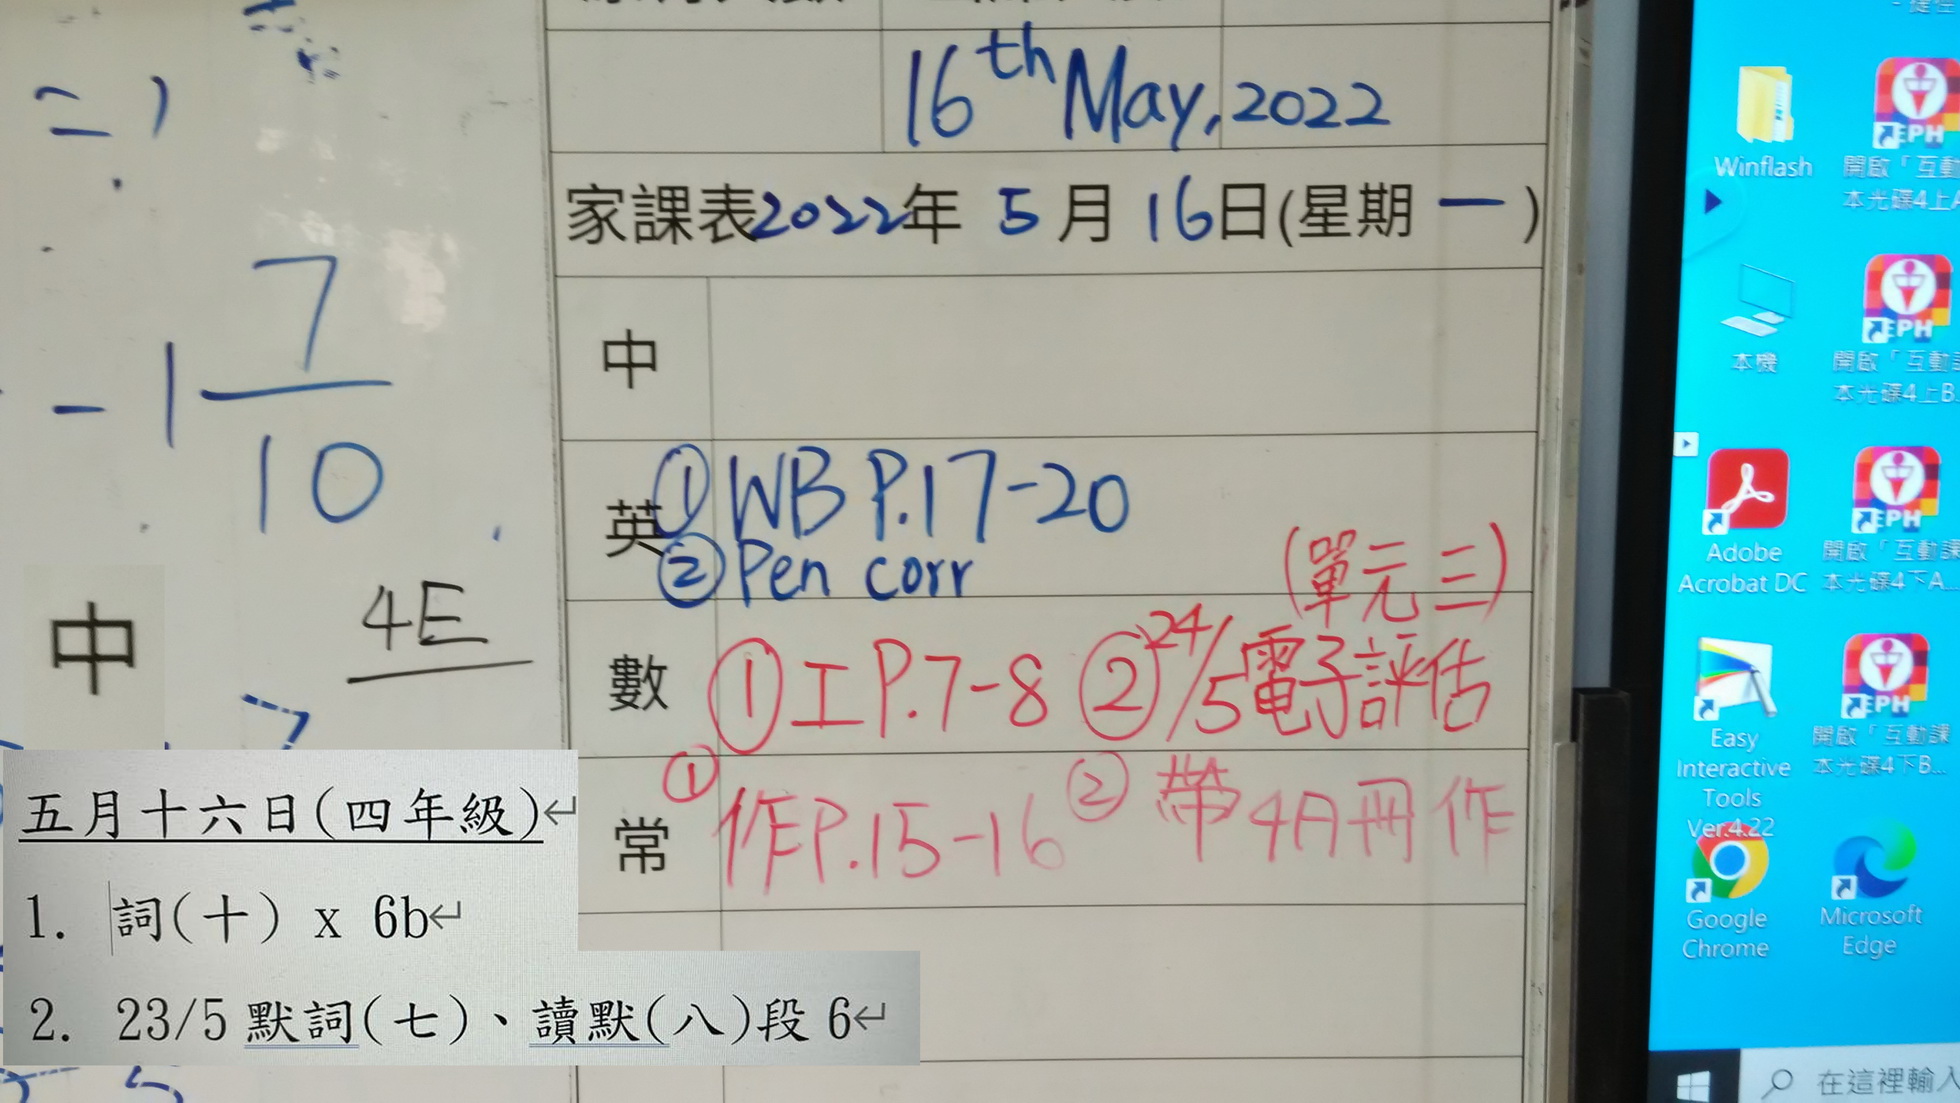 = 1
- 1 7/10
中
4E
五月十六日(四年級)↵
1. 詞(十) x 6b↵
2. 23/5 默詞(七)、讀默(八)段 6↵
16th May, 2022
家課表2022年 5 月 16日(星期 一 )
中
英 ① WB P.17-20
② Pen corr
(單元三)
數 ① 工 P.7-8 ② 24/5 電子評估
常 ① 作P.15-16 ② 帶4A冊作
Winflash
開啟「互動
本光碟4上A
本機
開啟「互動課
本光碟4上B...
Adobe
Acrobat DC
開啟「互動課
本光碟4下A...
Easy
Interactive
Tools
Ver.4.22
開啟「互動課
本光碟4下B...
Google
Chrome
Microsoft
Edge
在這裡輸入